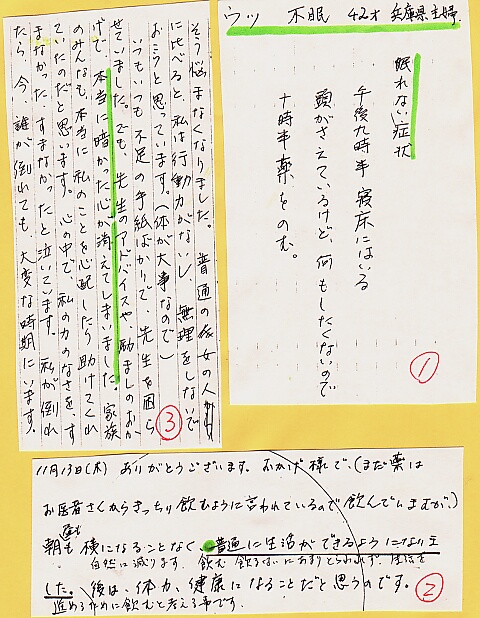 ウツ 不眠 42才 兵庫県主婦
眠れない症状
午後九時半 寝床にはいる
頭がさえているけど、何もしたくないので
十時半薬をのむ。
1
11月13日(木) ありがとうございます。おかげ様で、(まだ薬は
お医者さんからきっちり飲むように言われているので飲んでいますが、)
朝も 横になることなく、普通に生活ができるようになりま
自然に減ります。飲む 飲まないにあまりとらわれず、生活を
した。後は、体力、健康になることだと思うのです。
進めるために飲むと考える事です。
2
そう悩まなくなりました。普通の の人
に比べると、私は行動力がないし、無理をしないで
おこうと思っています。(体が大事なので)
いつもいつも不足の手紙ばかりで、先生を困ら
せていました。でも、先生のアドバイスや、励ましのおか
げで、本当に暗かった心が消えてしまいました。家族
のみんなも、本当に私のことを心配したり助けてくれ
ていたのだと思います。心の中で、私の力のなさを、す
まなかった、すまなかったと泣いています。私が倒れ
たら、今、誰が倒れても、大変な時期にいます。
3